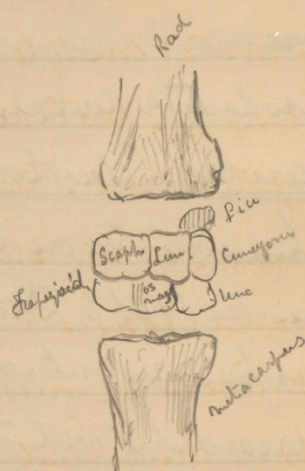 Rad
Scaph
Lun
Cuneiform
Trapezoid
os
mag
Unc
metacarpus